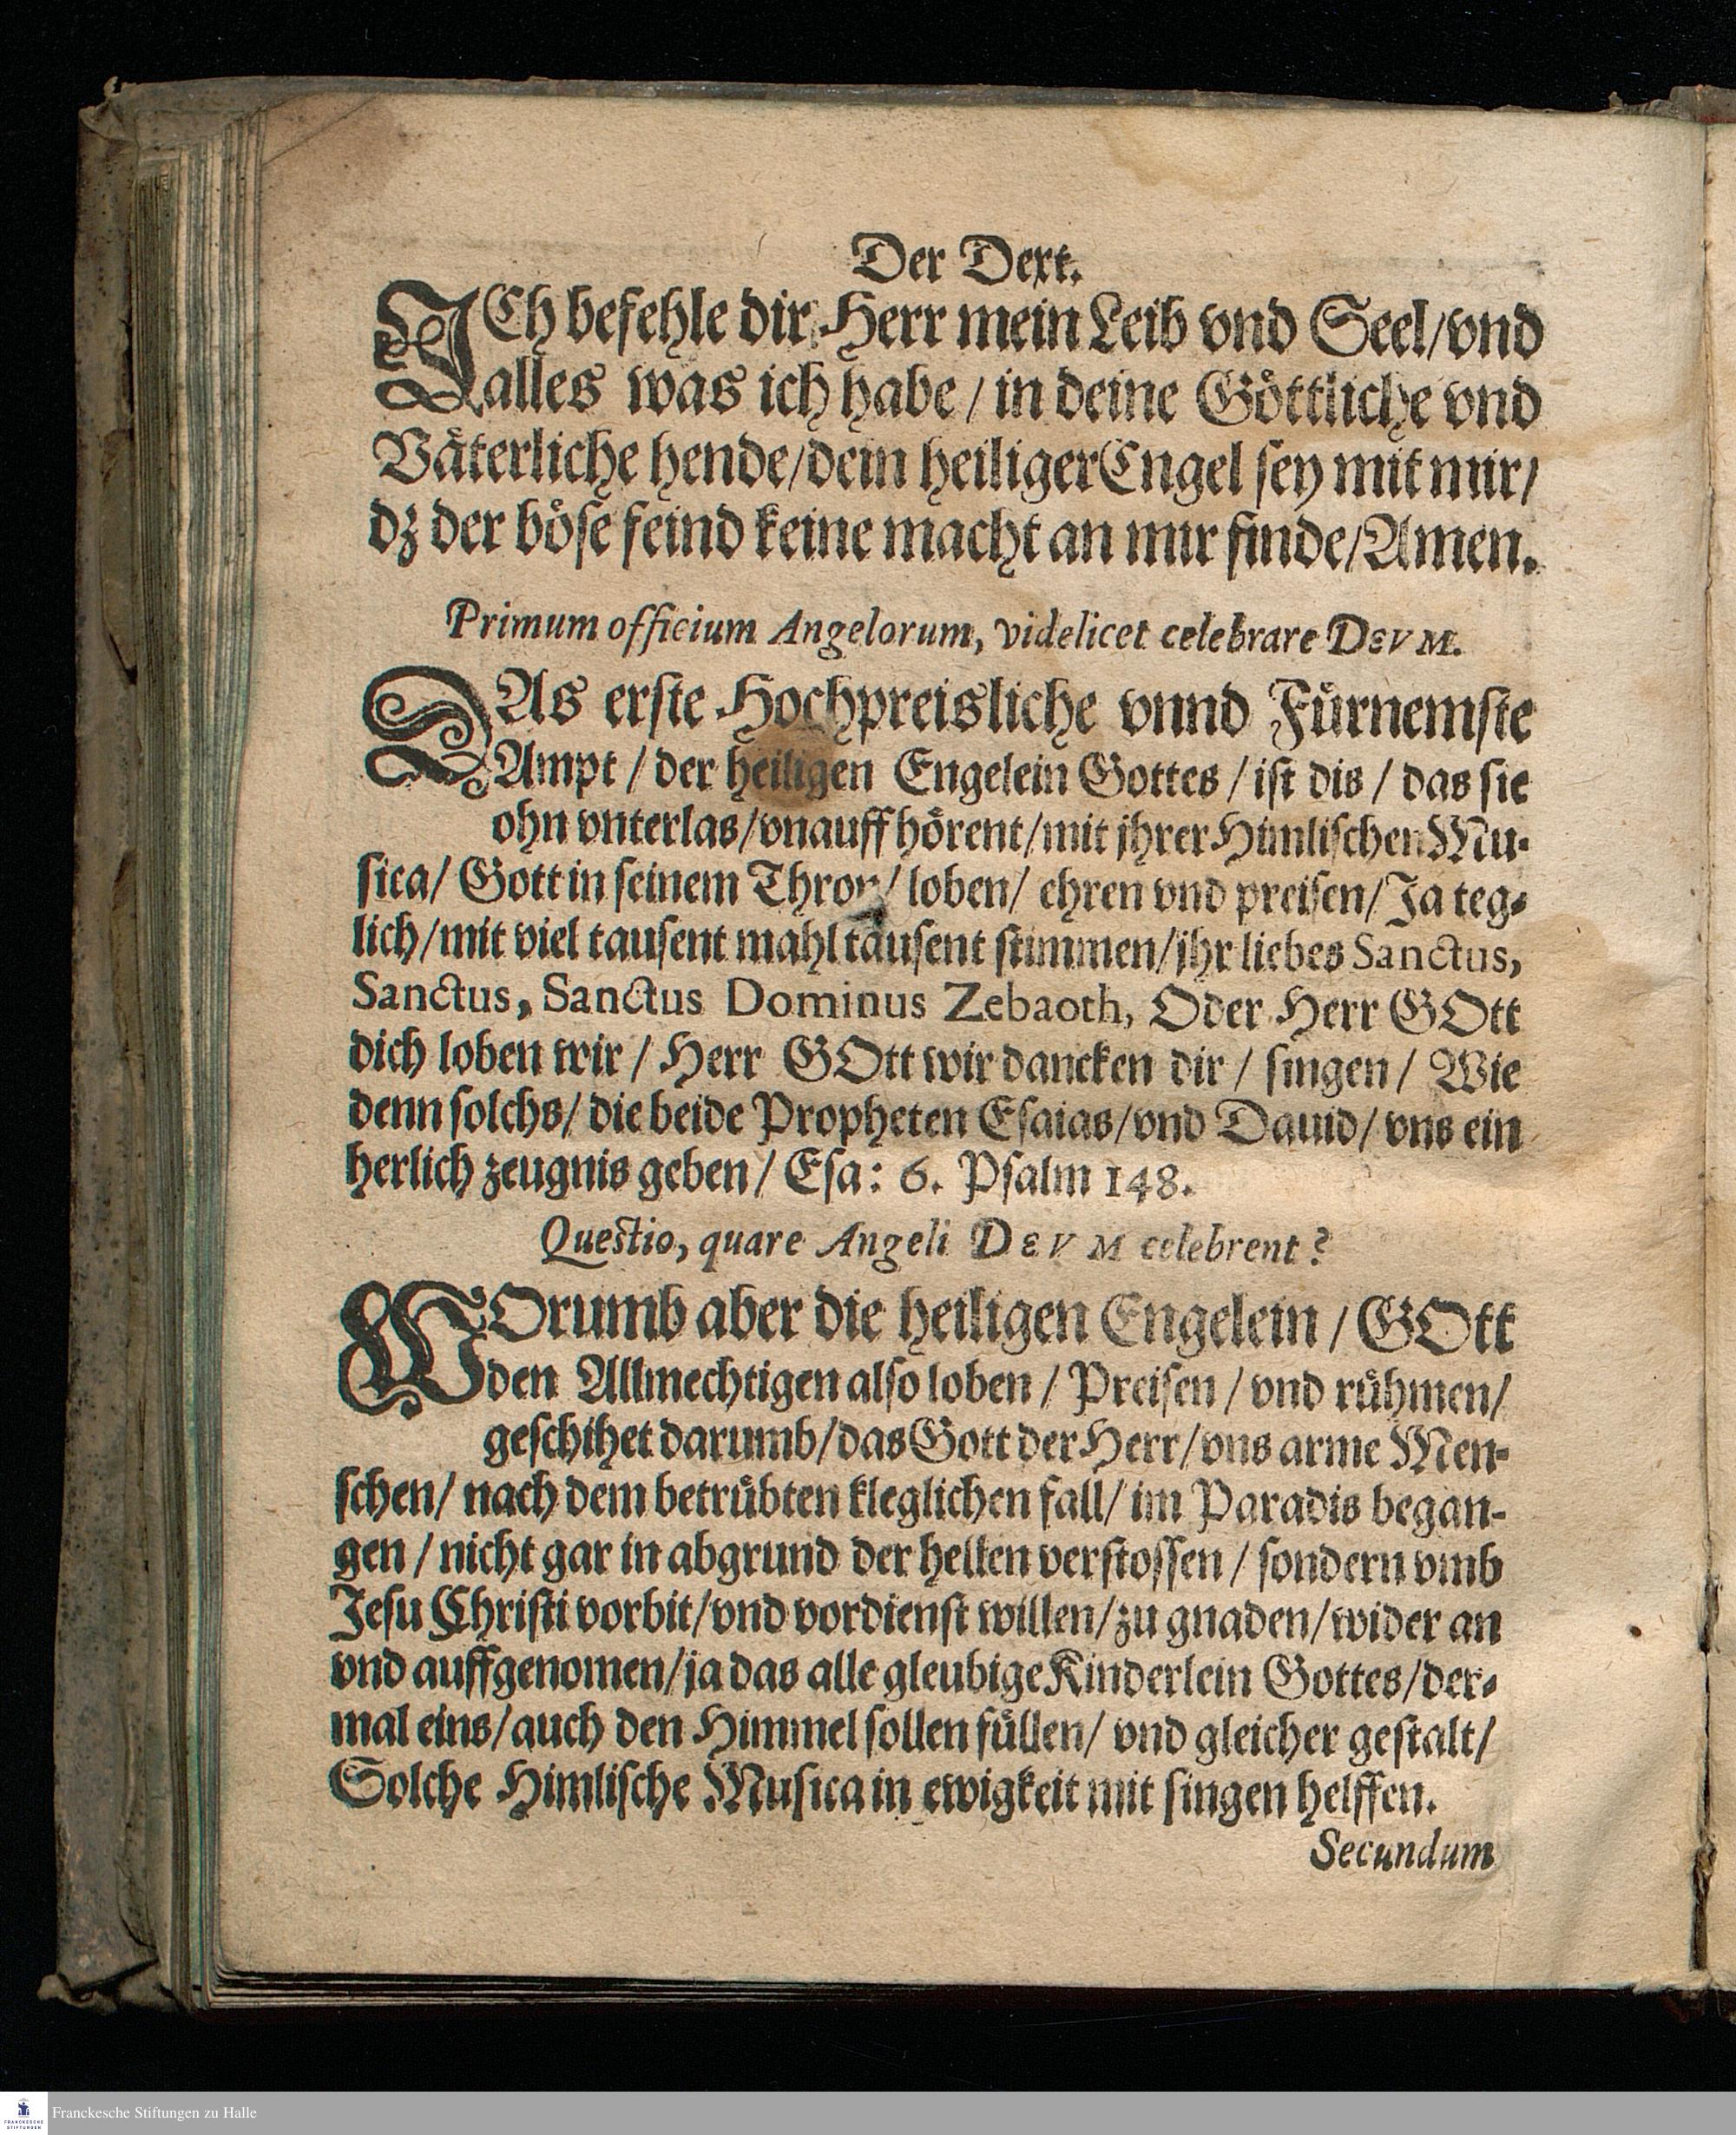 Der Dext.
ICh befehle dir Herr mein Leib vnd Seel/vnd
alles was ich habe / in deine Göttliche vnd
Väterliche hende/dein heiliger Engel sey mit mir/
dz der böse feind keine macht an mir finde/Amen.
Primum officium Angelorum, videlicet celebrare DEVM.
DAs erste Hochpreisliche vnnd Fürnemste
Ampt / der heiligen Engelein Gottes / ist dis / das sie
ohn vnterlas/vnauffhörent/mit jhrer Himlischen Mu-
sica/ Gott in seinem Thron/ loben/ ehren vnd preisen/Ja teg-
lich/mit viel tausent mahl tausent stimmen/jhr liebes Sanctus,
Sanctus, Sanctus Dominus Zebaoth, Oder Herr GOtt
dich loben wir / Herr GOtt wir dancken dir / singen / Wie
denn solchs/ die beide Propheten Esaias/vnd Dauid/ vns ein
herlich zeugnis geben/ Esa: 6. Psalm 148.
Questio, quare Angeli DEVM celebrent?
WOrumb aber die heiligen Engelein / GOtt
den Allmechtigen also loben / Preisen / vnd rühmen/
geschihet darumb/das Gott der Herr/vns arme Men-
schen/ nach dem betrübten kleglichen fall/ im Paradis began-
gen / nicht gar in abgrund der hellen verstossen / sondern vmb
Jesu Christi vorbit/vnd vordienst willen/zu gnaden/wider an
vnd auffgenomen/ja das alle gleubige Kinderlein Gottes/der-
mal eins/auch den Himmel sollen füllen/ vnd gleicher gestalt/
Solche Himlische Musica in ewigkeit mit singen helffen.
Secundum
FRANCKESCHE
STIFTUNGEN
Franckesche Stiftungen zu Halle